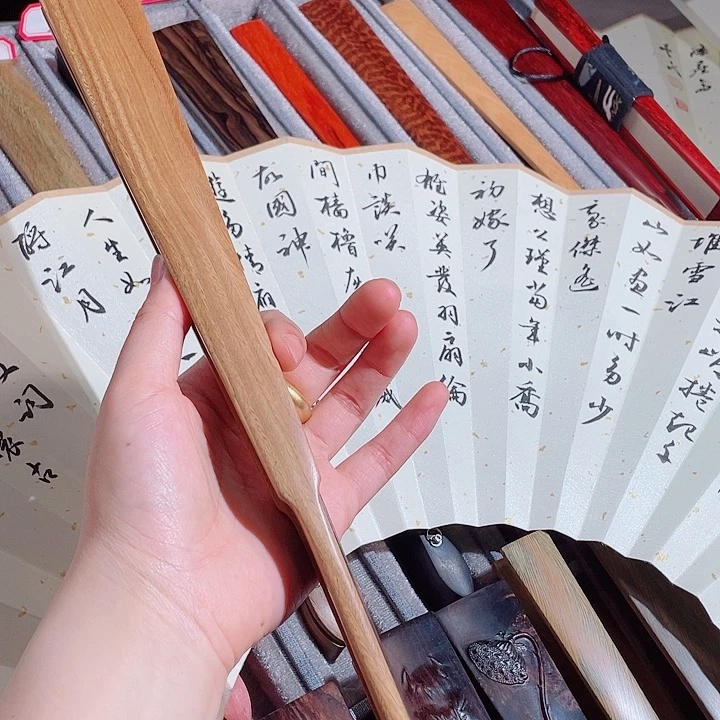 捲起千
堆雪江
山如畫一时多少
豪傑遙
想公瑾當年小喬
初嫁了
雄姿英發羽扇綸
巾談笑
間檣櫓灰
故國神
遊多情
人生如
酹江月
詞
懷古